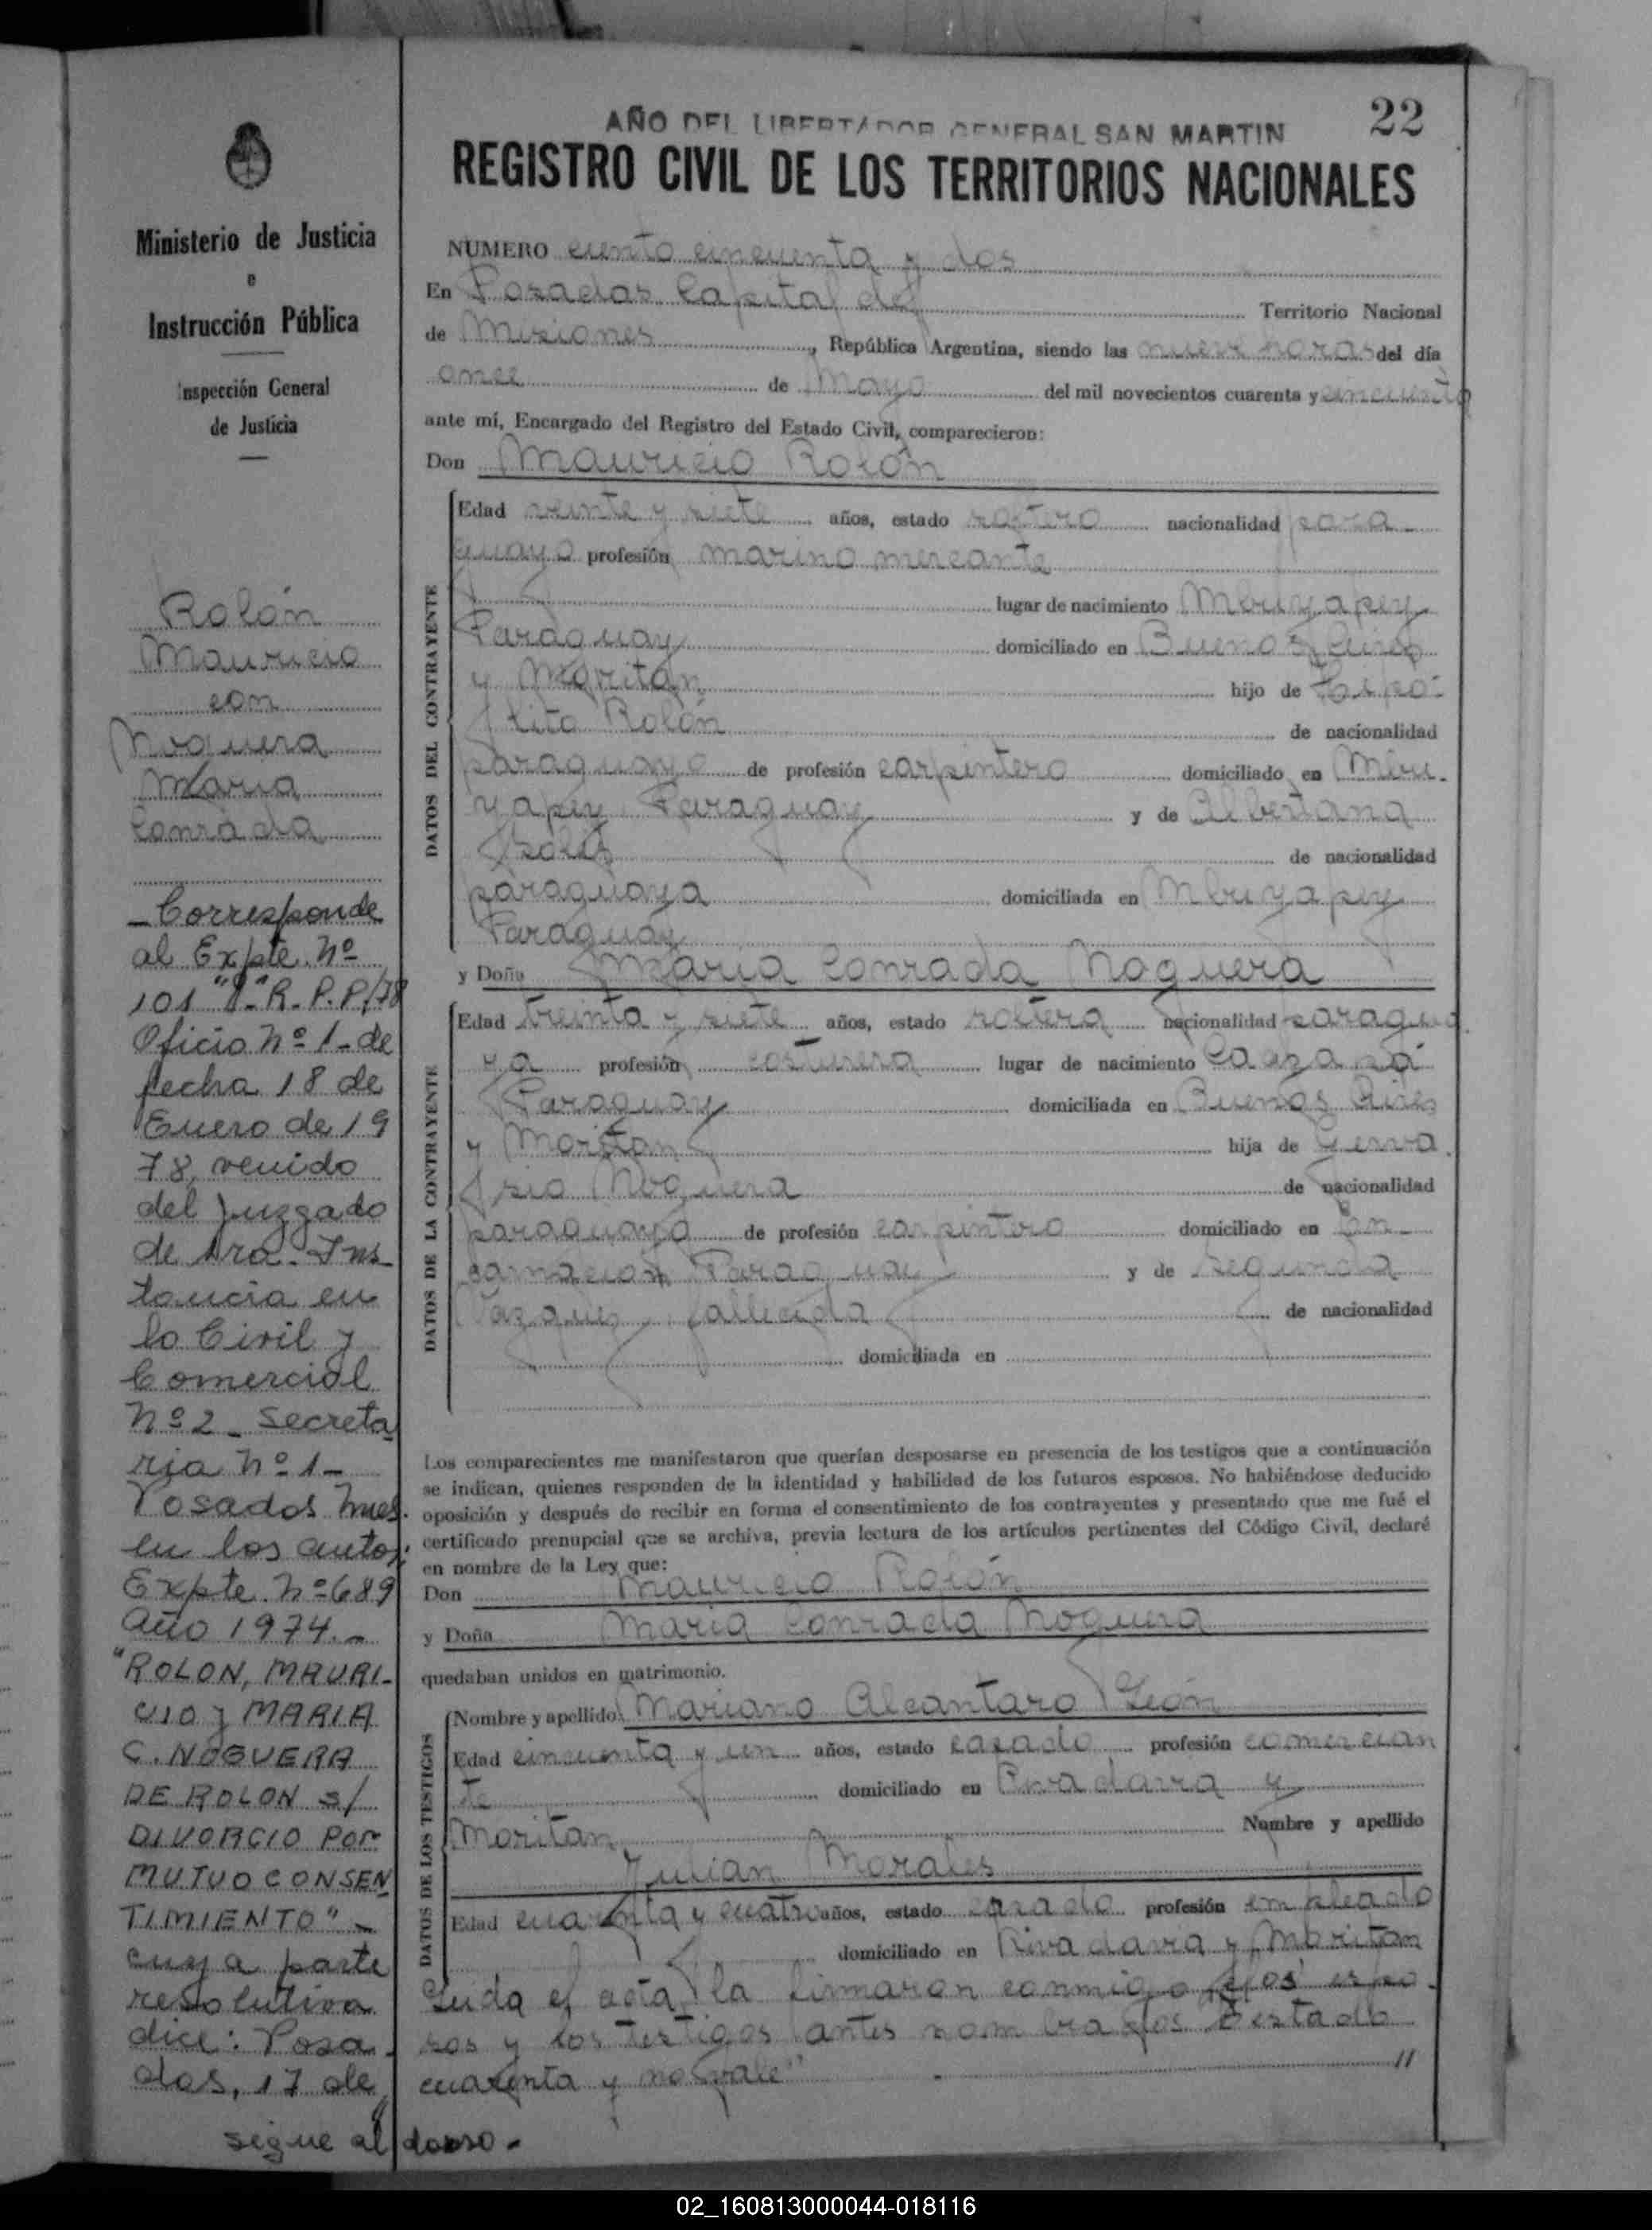 AÑO DEL LIBERTADOR GENERAL SAN MARTIN
22
REGISTRO CIVIL DE LOS TERRITORIOS NACIONALES
Ministerio de Justicia
e
Instrucción Pública
Inspección General
de Justicia
Rolón
Mauricio
con
Noguera
Maria
Conrada
- Corresponde
al Expte. Nº
101 "1" R.P.P/78
Oficio Nº 1- de
fecha 18 de
Enero de 19
78, venido
del Juzgado
de 1ra. Ins
tancia en
lo Civil y
Comercial
Nº 2 - Secreta
ria Nº 1-
Posadas Mnes.
en los autos:
Expte. Nº 689
Año 1974.-
"ROLON, MAURI-
CIO y MARIA
C. NOGUERA
DE ROLON s/
DIVORCIO POR
MUTUO CONSEN
TIMIENTO" -
cuya parte
resolutiva
dice: Posa-
das, 17 de
sigue al dorso.-
NUMERO ciento cincuenta y dos
En Posadas Capital del Territorio Nacional
de Misiones, República Argentina, siendo las nueve horas del día
once de Mayo del mil novecientos cuarenta y cincuenta
ante mí, Encargado del Registro del Estado Civil, comparecieron:
Don Mauricio Rolón
DATOS DEL CONTRAYENTE
Edad veinte y siete años, estado soltero nacionalidad para-
guayo profesión marino mercante
lugar de nacimiento Mbuyapey
Paraguay domiciliado en Buenos Aires
y Moritán hijo de Hipó-
lito Rolón de nacionalidad
paraguayo de profesión carpintero domiciliado en Mbu-
yapey Paraguay y de Albertana
Solis de nacionalidad
paraguaya domiciliada en Mbuyapey
Paraguay
y Doña Maria Conrada Noguera
DATOS DE LA CONTRAYENTE
Edad treinta y siete años, estado soltera nacionalidad paragua
ya profesión costurera lugar de nacimiento Caazapá
Paraguay domiciliada en Buenos Aires
y Moritan hija de Gerva
sio Noguera de nacionalidad
paraguayo de profesión carpintero domiciliado en En-
carnación Paraguay y de Segunda
Vazquez, fallecida de nacionalidad
domiciliada en
Los comparecientes me manifestaron que querían desposarse en presencia de los testigos que a continuación
se indican, quienes responden de la identidad y habilidad de los futuros esposos. No habiéndose deducido
oposición y después de recibir en forma el consentimiento de los contrayentes y presentado que me fué el
certificado prenupcial que se archiva, previa lectura de los artículos pertinentes del Código Civil, declaré
en nombre de la Ley que:
Don Mauricio Rolón
y Doña Maria Conrada Noguera
quedaban unidos en matrimonio.
DATOS DE LOS TESTIGOS
Nombre y apellido Mariano Alcantaro León
Edad cincuenta y un años, estado casado profesión comercian
te domiciliado en Rivadavia y
Moritan Nombre y apellido
Julian Morales
Edad cuarenta y cuatro años, estado casado profesión empleado
domiciliado en Rivadavia y Moritan
Leida el acta, la firmaron conmigo los espo-
sos y los testigos antes nombrados testado
cuarenta y no vale" //
02_160813000044-018116